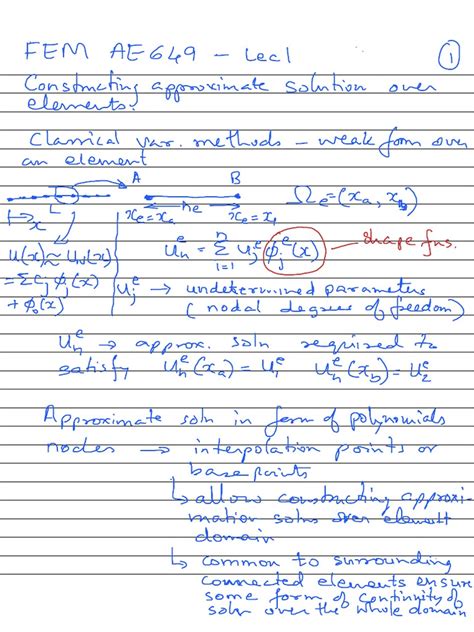 FEM AE649 – Lec 1
①
Constructing approximate solution over
elements:
Classical var. methods – weak form over
an element
A B Ωe=(xa, xb)
L he
x xe=xa xe=xb
u(x)≈UN(x) Un^e = Σ_{i=1}^{n} Uj^e φj^e(x) – shape fns.
=Σcj φj(x)
+ φ0(x) Uj^e → undetermined parameters
(nodal degrees of freedom)
Un^e → approx. soln required to
satisfy Un^e(xa)=U1^e Un^e(xb)=U2^e
Approximate soln in form of polynomials
nodes → interpolation points or
base points
↳ allow constructing approxi-
mation solns over element
domain
↳ common to surrounding
connected elements ensure
some form of continuity of
soln over the whole domain